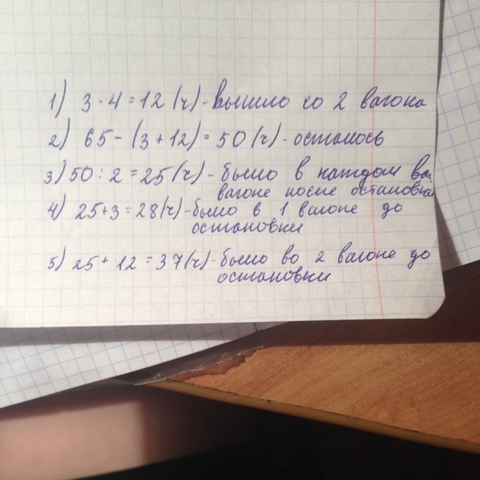 1) 3·4=12 (ч)-вышло со 2 вагона
2) 65-(3+12)=50(ч)-осталось
3) 50:2=25(ч)-было в каждом ва
вагоне после остановки
4) 25+3=28(ч)-было в 1 вагоне до
остановки
5) 25+12=37(ч)-было во 2 вагоне до
остановки